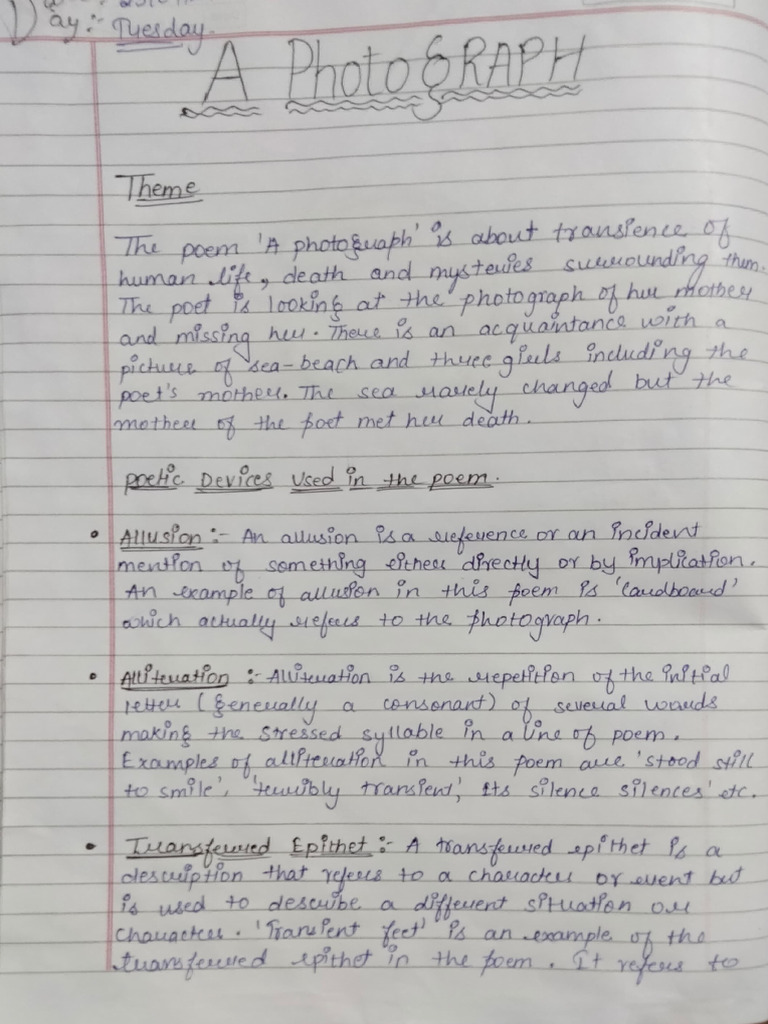 Day:- Tuesday.
A PhotoGRAPH
Theme
The poem 'A photograph' is about transience of
human life, death and mysteries surrounding them.
The poet is looking at the photograph of her mother
and missing her. There is an acquaintance with a
picture of sea-beach and three girls including the
poet's mother. The sea rarely changed but the
mother of the poet met her death.
Poetic Devices Used in the poem.
• Allusion :- An allusion is a reference or an incident
mention of something either directly or by implication.
An example of allusion in this poem is 'cardboard'
which actually refers to the photograph.
• Alliteration :- Alliteration is the repetition of the initial
letter (generally a consonant) of several words
making the stressed syllable in a line of poem.
Examples of alliteration in this poem are 'stood still
to smile', 'terribly transient', its silence silences' etc.
• Transferred Epithet :- A transferred epithet is a
description that refers to a character or event but
is used to describe a different situation or
character. 'Transient feet' is an example of the
transferred epithet in the poem. It refers to